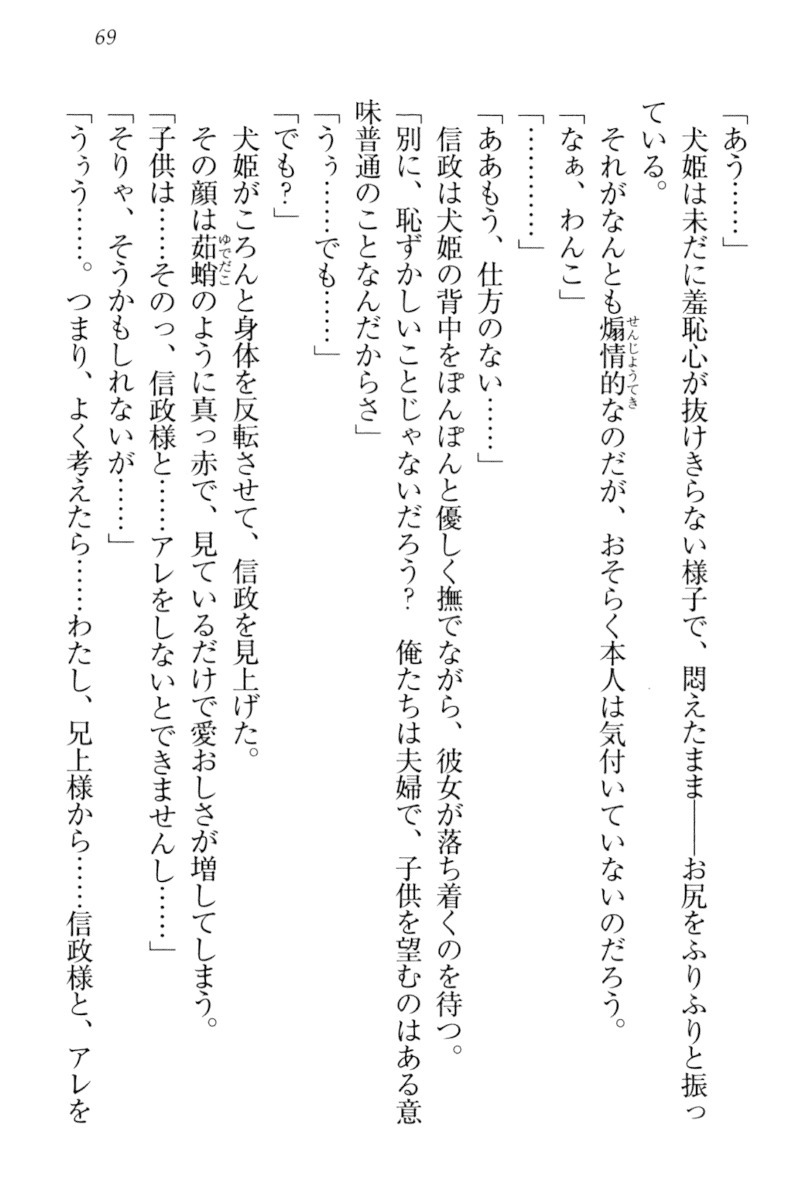 69
「あう……」
　犬姫は未だに羞恥心が抜けきらない様子で、悶えたまま――お尻をふりふりと振っ
ている。
　それがなんとも煽情的なのだが、おそらく本人は気付いていないのだろう。
せんじようてき
「なぁ、わんこ」
「…………」
「ああもう、仕方のない……」
　信政は犬姫の背中をぽんぽんと優しく撫でながら、彼女が落ち着くのを待つ。
「別に、恥ずかしいことじゃないだろう？　俺たちは夫婦で、子供を望むのはある意
味普通のことなんだからさ」
「うぅ……でも……」
「でも？」
　犬姫がころんと身体を反転させて、信政を見上げた。
　その顔は茹蛸のように真っ赤で、見ているだけで愛おしさが増してしまう。
ゆでだこ
「子供は……そのっ、信政様と……アレをしないとできませんし……」
「そりゃ、そうかもしれないが……」
「うぅう……。つまり、よく考えたら……わたし、兄上様から……信政様と、アレを